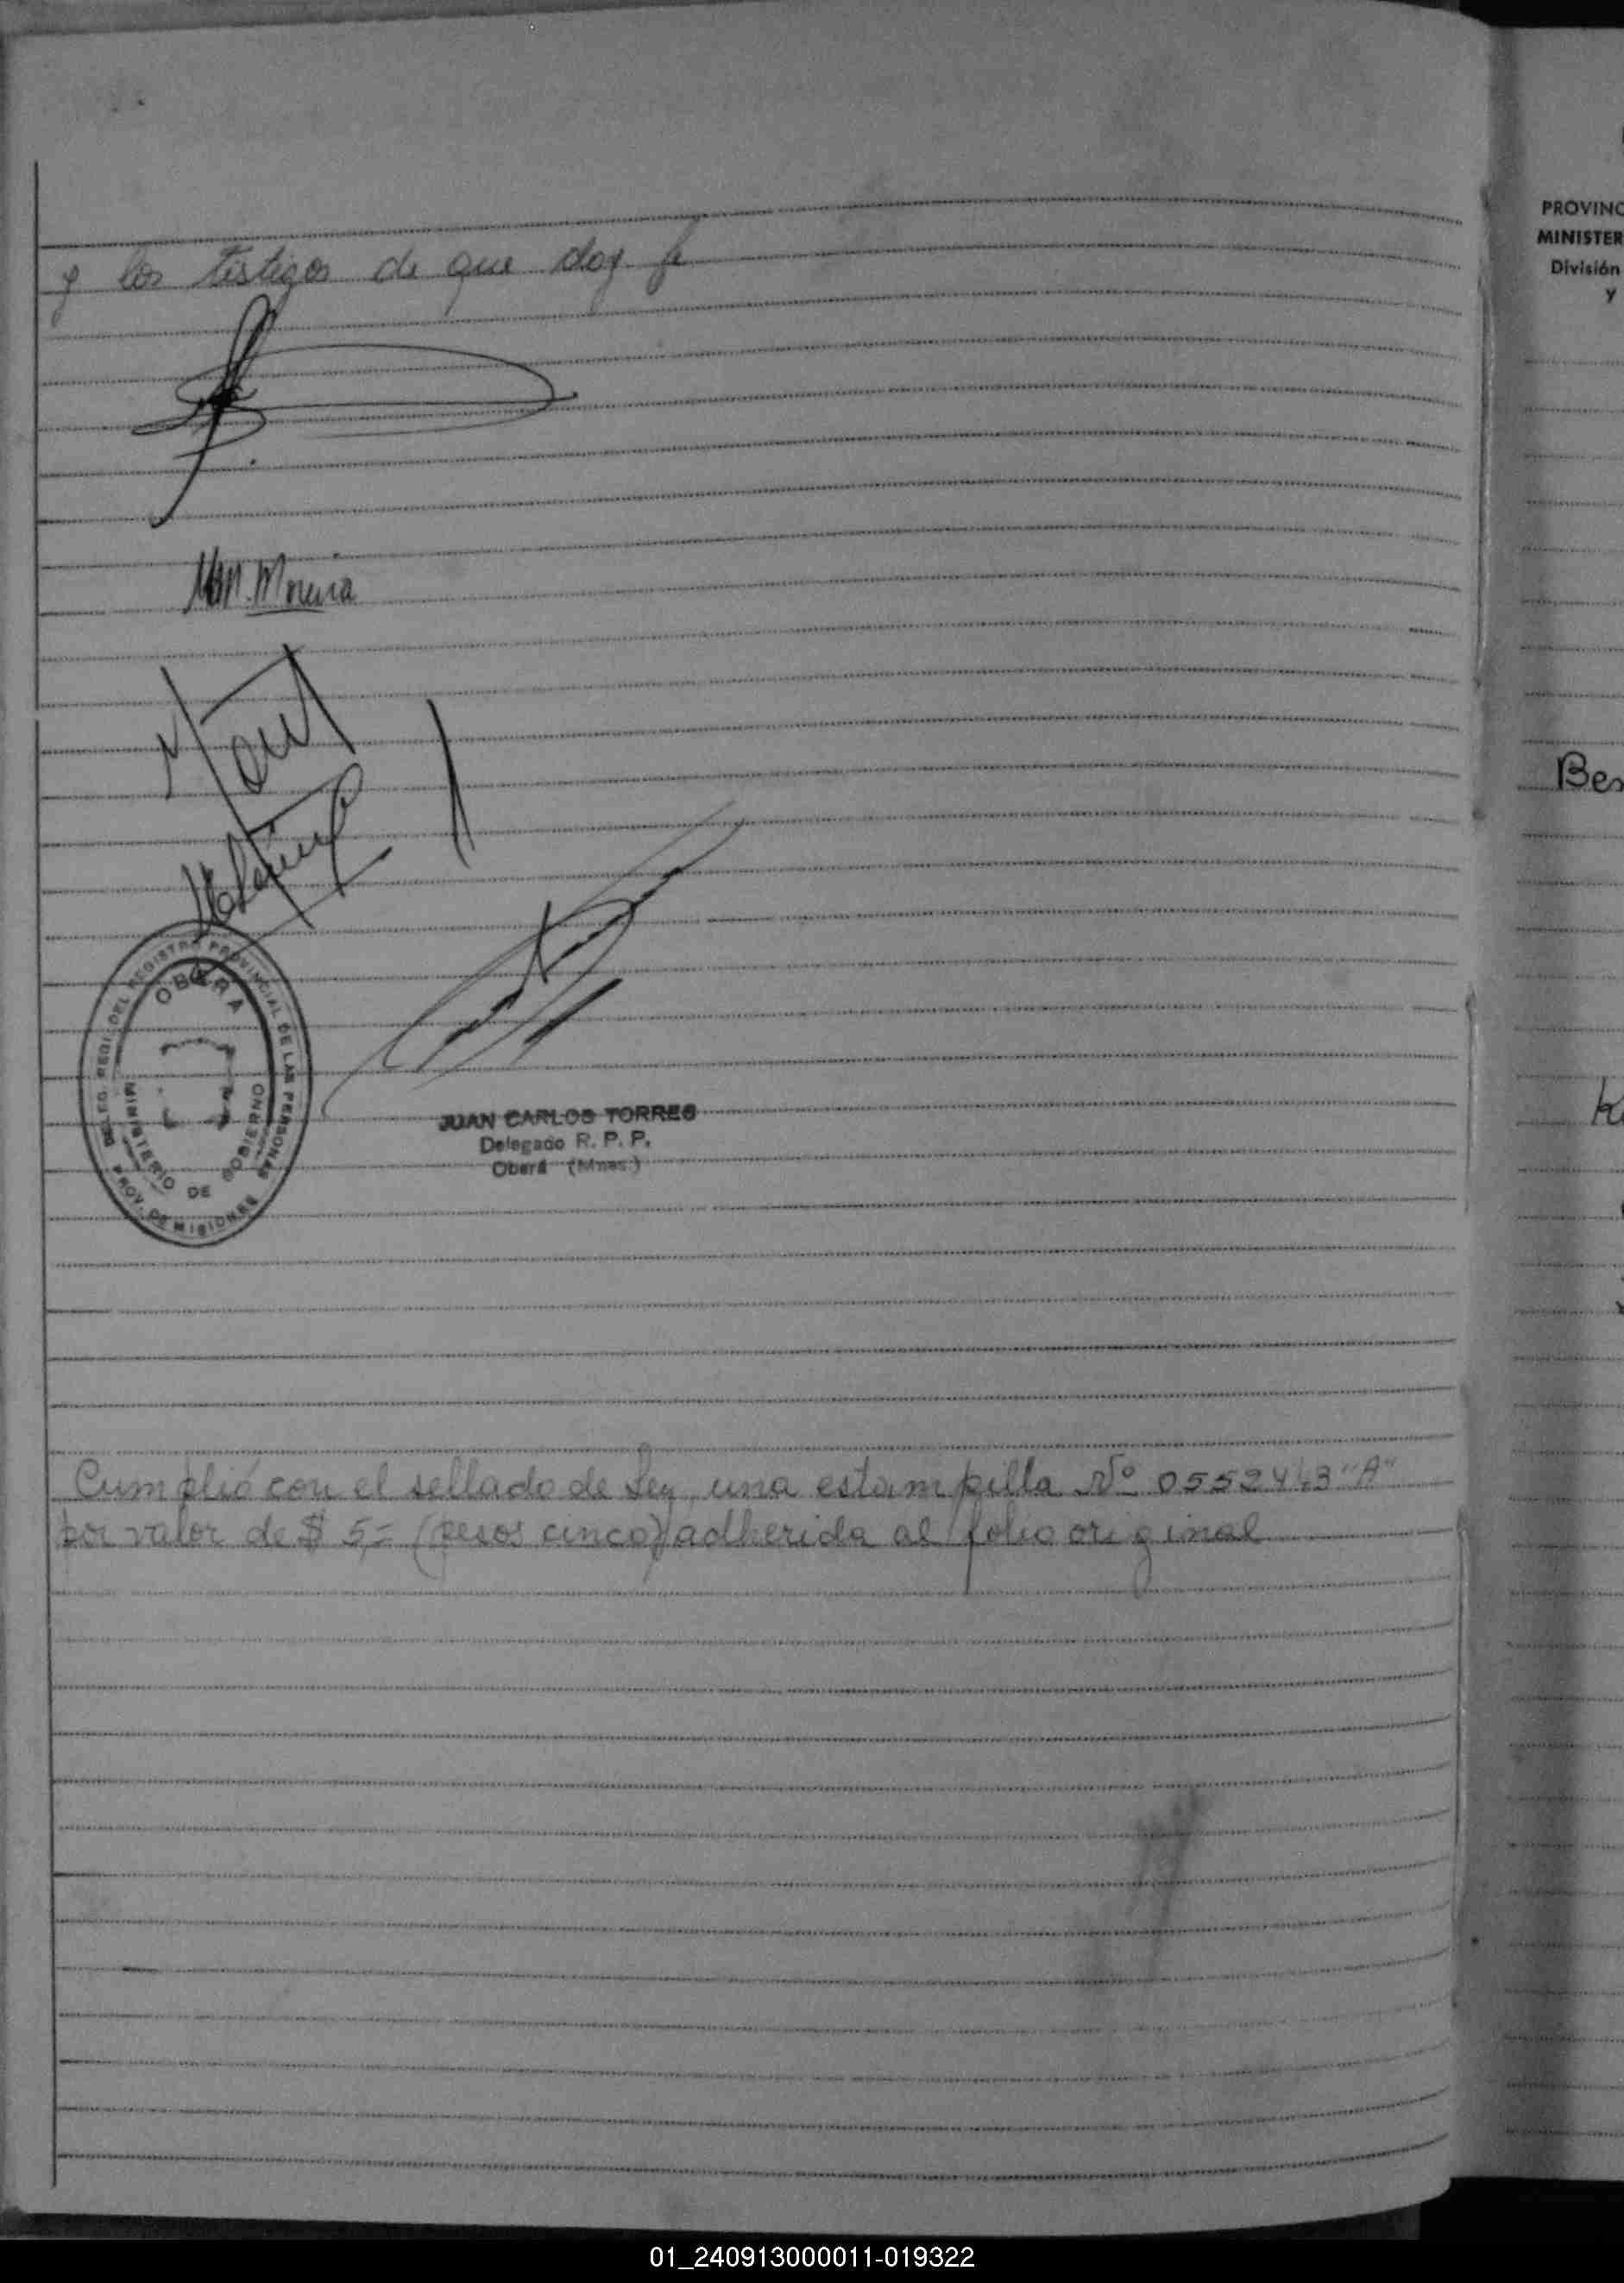 y los testigos de que doy fe
Moreira
DELEG. REGI. DEL REGISTRO PROVINCIAL DE LAS PERSONAS
OBERA
MINISTERIO DE GOBIERNO
PROV. DE MISIONES
JUAN CARLOS TORRES
Delegado R. P. P.
Oberá (Mnes.)
Cumplió con el sellado de Ley, una estampilla Nº 0552443 "A"
por valor de $ 5,= (pesos cinco) adherida al folio original
PROVINC
MINISTER
División
y
Bes
01_240913000011-019322